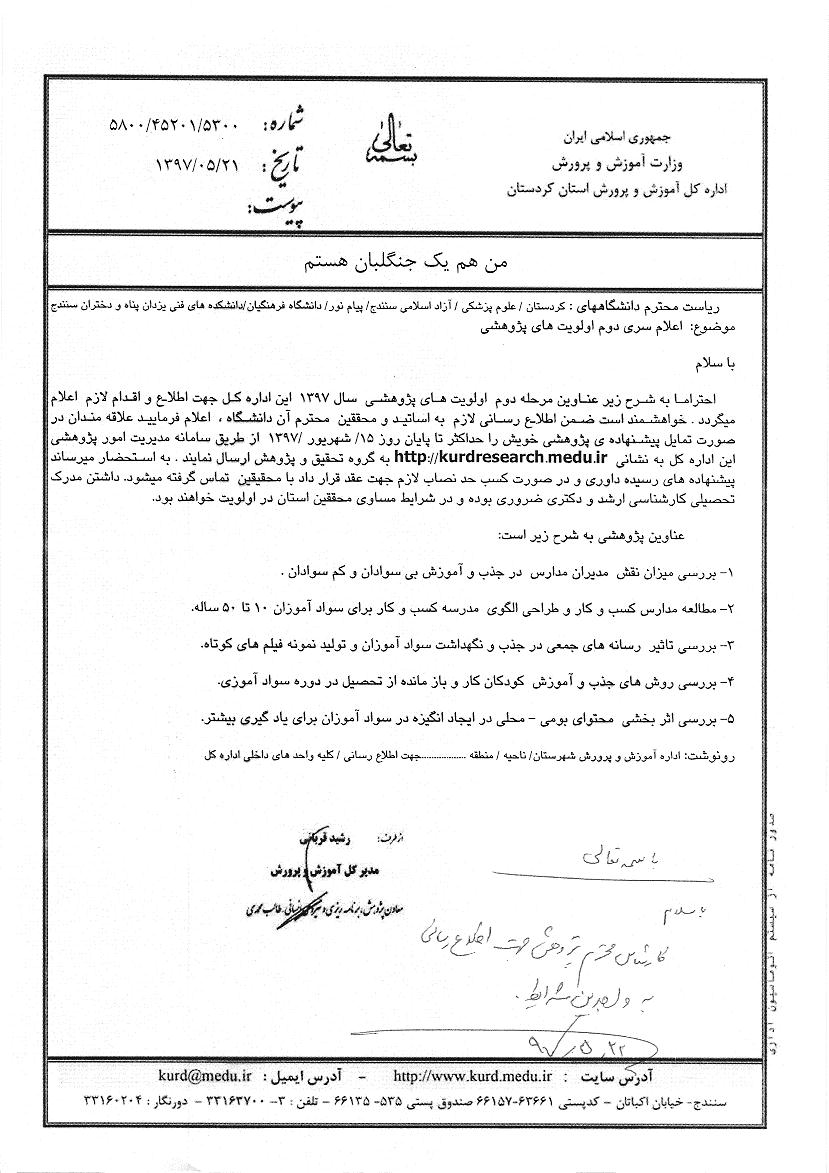 جمهوری اسلامی ایران
وزارت آموزش و پرورش
اداره کل آموزش و پرورش استان کردستان
بسمه تعالی
شماره: ۵۸۰۰/۴۵۲۰۱/۵۳۰۰
تاریخ: ۱۳۹۷/۰۵/۲۱
پیوست:
من هم یک جنگلبان هستم
ریاست محترم دانشگاههای : کردستان / علوم پزشکی / آزاد اسلامی سنندج/ پیام نور/ دانشگاه فرهنگیان/دانشکده های فنی یزدان پناه و دختران سنندج
موضوع: اعلام سری دوم اولویت های پژوهشی
با سلام
احتراما به شرح زیر عناوین مرحله دوم اولویت های پژوهشی سال ۱۳۹۷ این اداره کل جهت اطلاع و اقدام لازم اعلام
میگردد . خواهشمند است ضمن اطلاع رسانی لازم به اساتید و محققین محترم آن دانشگاه ، اعلام فرمایید علاقه مندان در
صورت تمایل پیشنهاده ی پژوهشی خویش را حداکثر تا پایان روز ۱۵/ شهریور /۱۳۹۷ از طریق سامانه مدیریت امور پژوهشی
این اداره کل به نشانی http://kurdresearch.medu.ir به گروه تحقیق و پژوهش ارسال نمایند . به استحضار میرساند
پیشنهاده های رسیده داوری و در صورت کسب حد نصاب لازم جهت عقد قرار داد با محقیقین تماس گرفته میشود. داشتن مدرک
تحصیلی کارشناسی ارشد و دکتری ضروری بوده و در شرایط مساوی محققین استان در اولویت خواهند بود.
عناوین پژوهشی به شرح زیر است:
۱- بررسی میزان نقش مدیران مدارس در جذب و آموزش بی سوادان و کم سوادان .
۲- مطالعه مدارس کسب و کار و طراحی الگوی مدرسه کسب و کار برای سواد آموزان ۱۰ تا ۵۰ ساله.
۳- بررسی تاثیر رسانه های جمعی در جذب و نگهداشت سواد آموزان و تولید نمونه فیلم های کوتاه.
۴- بررسی روش های جذب و آموزش کودکان کار و باز مانده از تحصیل در دوره سواد آموزی.
۵- بررسی اثر بخشی محتوای بومی - محلی در ایجاد انگیزه در سواد آموزان برای یاد گیری بیشتر.
رونوشت: اداره آموزش و پرورش شهرستان/ ناحیه / منطقه ..................جهت اطلاع رسانی / کلیه واحد های داخلی اداره کل
از طرف: رشید قربانی
مدیر کل آموزش و پرورش
معاون پژوهش، برنامه ریزی و نیروی انسانی. طالب محمدی
باسمه تعالی
با سلام
کارشناس محترم پژوهشی جهت اطلاع رسانی
به واجدین شرایط .
۹۷/۵/۲۲
صدور نامه از سیستم اتوماسیون اداری
آدرس سایت : http://www.kurd.medu.ir - آدرس ایمیل : kurd@medu.ir
سنندج- خیابان اکباتان - کدپستی ۶۳۶۶۱-۶۶۱۵۷ صندوق پستی ۵۳۵- ۶۶۱۳۵ - تلفن : ۳- ۳۳۱۶۳۷۰۰ - دورنگار : ۳۳۱۶۰۲۰۴